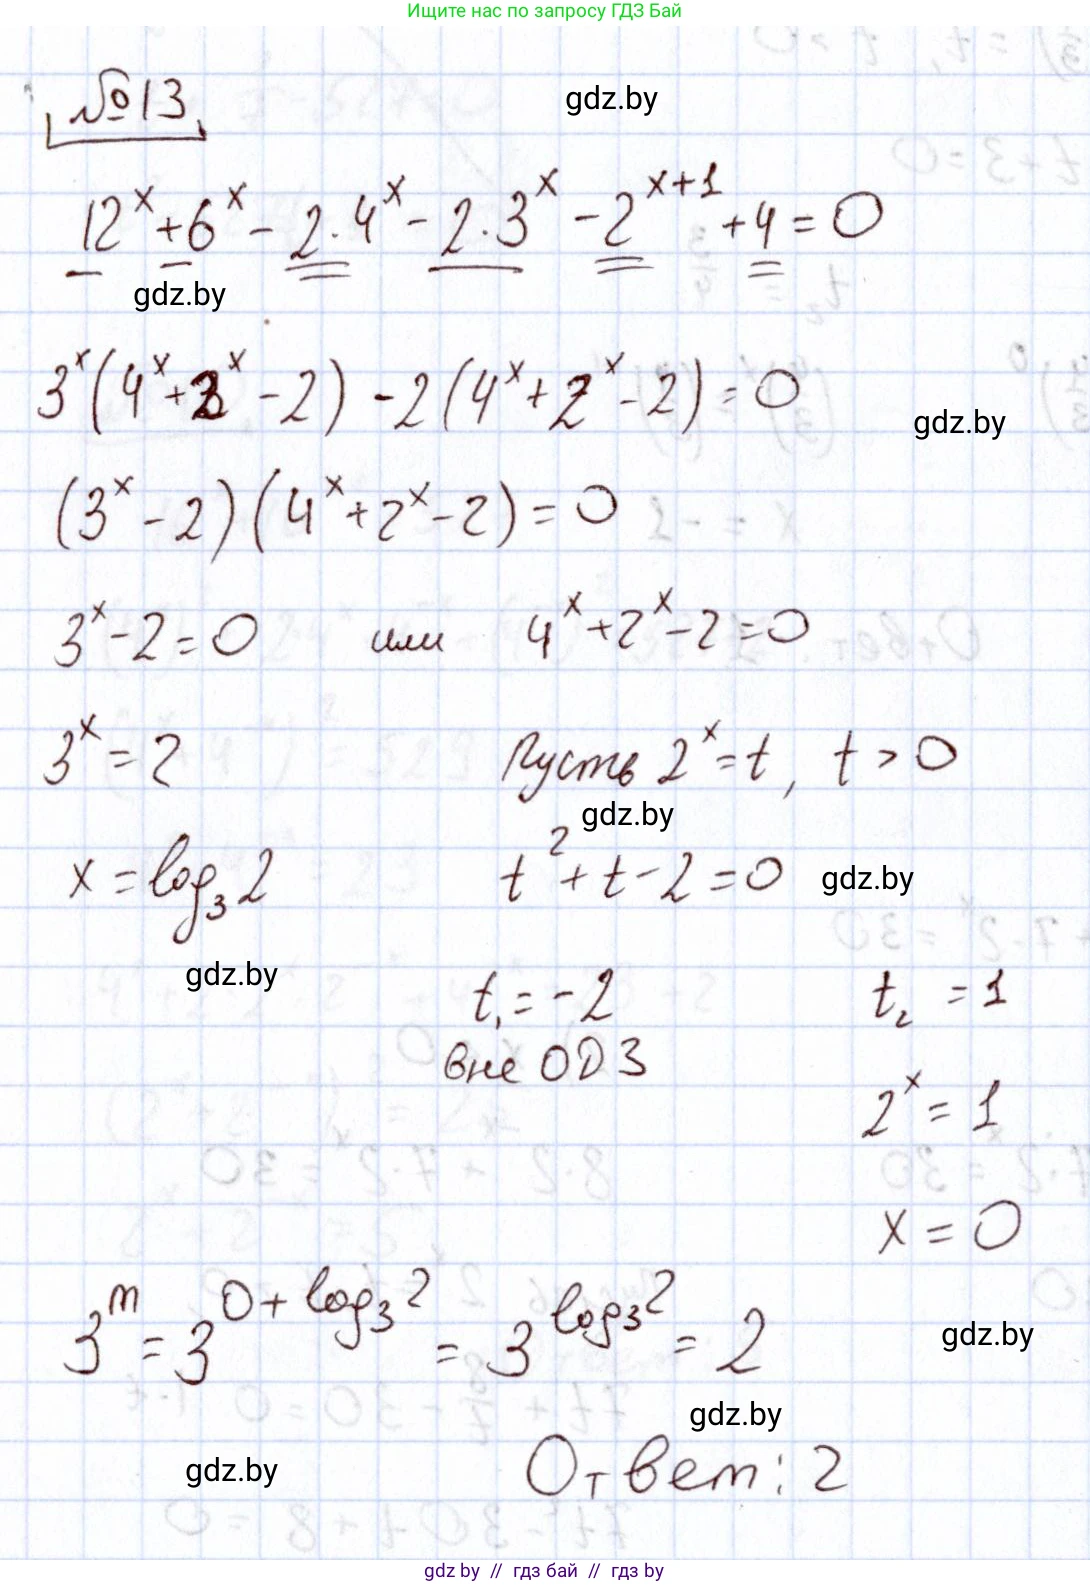 Ищите нас по запросу ГДЗ Бай
№13
gdz.by
12^x + 6^x - 2·4^x - 2·3^x - 2^{x+1} + 4 = 0
gdz.by
3^x(4^x + 2^x - 2) - 2(4^x + 2^x - 2) = 0
gdz.by
(3^x - 2)(4^x + 2^x - 2) = 0
3^x - 2 = 0 или 4^x + 2^x - 2 = 0
3^x = 2 Пусть 2^x = t, t > 0
gdz.by
x = log_3 2 t^2 + t - 2 = 0 gdz.by
gdz.by
t_1 = -2 t_2 = 1
вне ОДЗ
2^x = 1
x = 0
3^m = 3^{0 + log_3 2} = 3^{log_3 2} = 2
gdz.by
gdz.by
gdz.by
Ответ: 2
gdz.by // гдз бай // гдз by